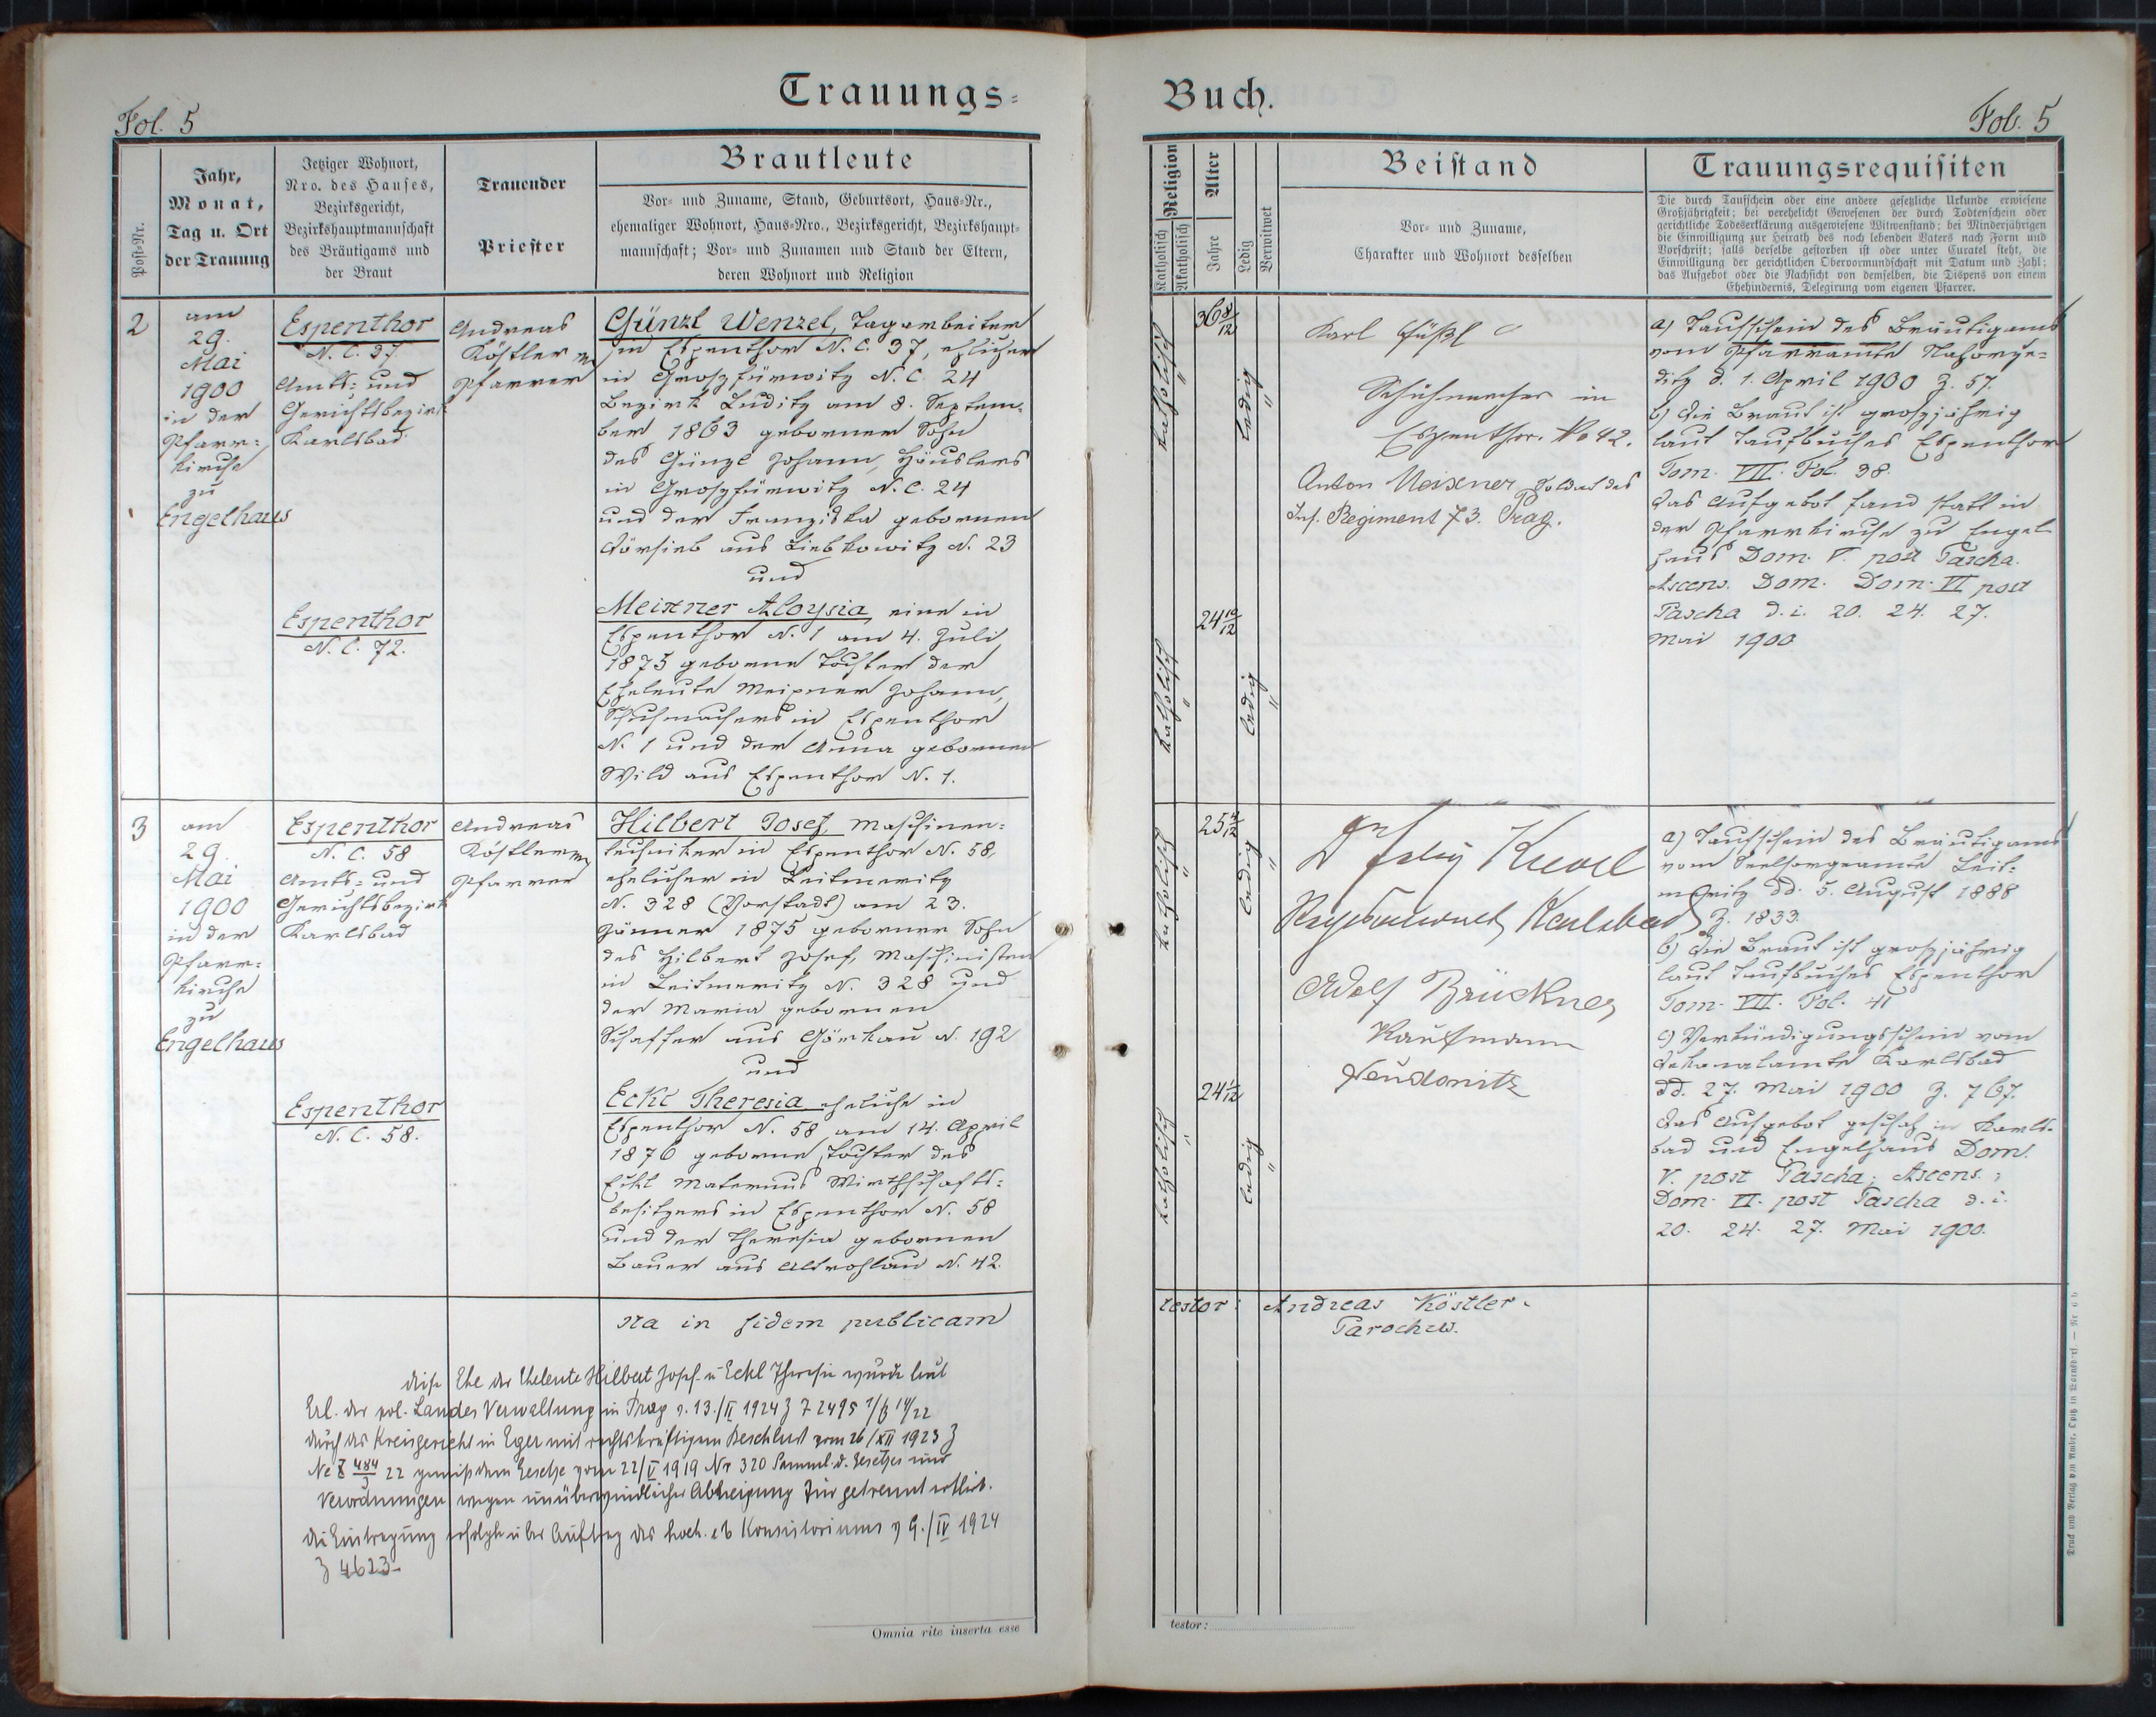 Trauungs=
Buch.
Fol. 5
Fol. 5
Post-Nr.
Jahr,
Monat,
Tag u. Ort
der Trauung
Jetziger Wohnort,
Nro. des Hauses,
Bezirksgericht,
Bezirkshauptmannschaft
des Bräutigams und
der Braut
Trauender
Priester
Brautleute
Vor- und Zuname, Stand, Geburtsort, Haus-Nr.,
ehemaliger Wohnort, Haus-Nro., Bezirksgericht, Bezirkshaupt-
mannschaft; Vor- und Zunamen und Stand der Eltern,
deren Wohnort und Religion
Religion
Katholisch
Akatholisch
Alter
Jahre
Ledig
Verwitwet
Beistand
Vor- und Zuname,
Charakter und Wohnort desselben
Trauungsrequisiten
Die durch Taufschein oder eine andere gesetzliche Urkunde erwiesene
Großjährigkeit; bei verehelicht Gewesenen der durch Todtenschein oder
gerichtliche Todeserklärung ausgewiesene Witwenstand; bei Minderjährigen
die Einwilligung zur Heirath des noch lebenden Vaters nach Form und
Vorschrift; falls derselbe gestorben ist oder unter Curatel steht, die
Einwilligung der gerichtlichen Obervormundschaft mit Datum und Zahl;
das Aufgebot oder die Nachsicht von demselben, die Dispens von einem
Ehehindernis, Delegirung vom eigenen Pfarrer.
2
am
29.
Mai
1900
in der
Pfarr=
kirche
zu
Engelhaus
Espenthor
N. C. 37.
Amts= und
Gerichtsbezirk
Karlsbad.
Andreas
Köstler
Pfarrer
Günzl Wenzel, Tagarbeiter
in Espenthor N. C. 37, ehlicher
in Groszfürwitz N. C. 24
Bezirk Luditz am 8. Septem=
ber 1863 geborner Sohn
des Günzl Johann, Häuslers
in Groszfürwitz N. C. 24
und der Franziska gebornen
aus Liebkowitz N. 23
und
Espenthor
N. C. 72.
Meixner Aloysia, eine in
Espenthor N. 1 am 4. Juli
1875 geborne Tochter der
Eheleute Meixner Johann,
Schuhmachers in Espenthor
N. 1 und der Anna gebornen
Wild aus Espenthor N. 1.
katholisch
"
36 8/12
ledig
"
katholisch
"
24 10/12
ledig
"
Karl Füßl
Schuhmacher in
Espenthor. No 42.
Anton Meixner Soldat des
Inf. Regiment 73. Prag.
a) Taufschein des Bräutigams
vom Pfarramte
ditz d. 1. April 1900 Z. 57.
b) die Braut ist groszjährig
laut Taufbuches Espenthor
Tom. VII. Fol. 38.
Das Aufgebot fand statt in
der Pfarrkirche zu Engel
haus Dom. V. post Pascha.
Ascens. Dom. Dom. VI post
Pascha d. i. 20. 24. 27.
Mai 1900
3
am
29.
Mai
1900
in der
Pfarr=
kirche
zu
Engelhaus
Espenthor
N. C. 58
Amts= und
Gerichtsbezirk
Karlsbad
Andreas
Köstler
Pfarrer
Hilbert Josef, Maschinen=
techniker in Espenthor N. 58,
ehelicher in Leitmeritz
N. 328 (Vorstadt) am 23.
Jänner 1875 geborner Sohn
des Hilbert Josef, Maschinisten
in Leitmeritz N. 328 und
der Maria gebornen
Schaffer aus Görkau N. 192
und
Espenthor
N. C. 58.
Eckl Theresia eheliche in
Espenthor N. 58 am 14. April
1876 geborne Tochter des
Eckl Maternus Wirthschafts=
besitzers in Espenthor N. 58
und der Theresia gebornen
Bauer aus Altrohlau N. 42.
katholisch
"
25 4/12
ledig
"
katholisch
"
24 1/12
ledig
"
Karlsbad
Adolf Brückner
Kaufmann
a) Taufschein des Bräutigams
vom Seelsorgeamte Leit=
meritz dd. 5. August 1888
Z. 1833.
b) die Braut ist groszjährig
laut Taufbuches Espenthor
Tom. VII. Fol. 41
c) Verkündigungsschein vom
Dekanalamte Karlsbad
dd. 27. Mai 1900 Z. 767.
Das Aufgebot geschah in Karls=
bad und Engelhaus Dom.
V. post Pascha; Ascens.;
Dom. VI. post Pascha d. i.
20. 24. 27. Mai 1900.
Ita in fidem publicam
testor: Andreas Köstler.
Parochus.
diese Ehe der Eheleute Hilbert Josef u Eckl Theresie wurde laut
Erl. der pol. Landes Verwaltung in Prag v. 13./II 1924
durch das Kreisgericht in Eger mit rechtskräftigem Beschluß vom 26/XII 1923 Z
Nc 484/22 gemäß dem Gesetze vom 22/V 1919 Nr 320 Samml. d. Gesetzes und
Verordnungen wegen unüberwindlicher Abneigung für getrennt erklärt.
die Eintragung erfolgte über Auftrag des hoch. eb Konsistoriums v 9./IV 1924
Z 4623-
Omnia rite inserta esse
testor: